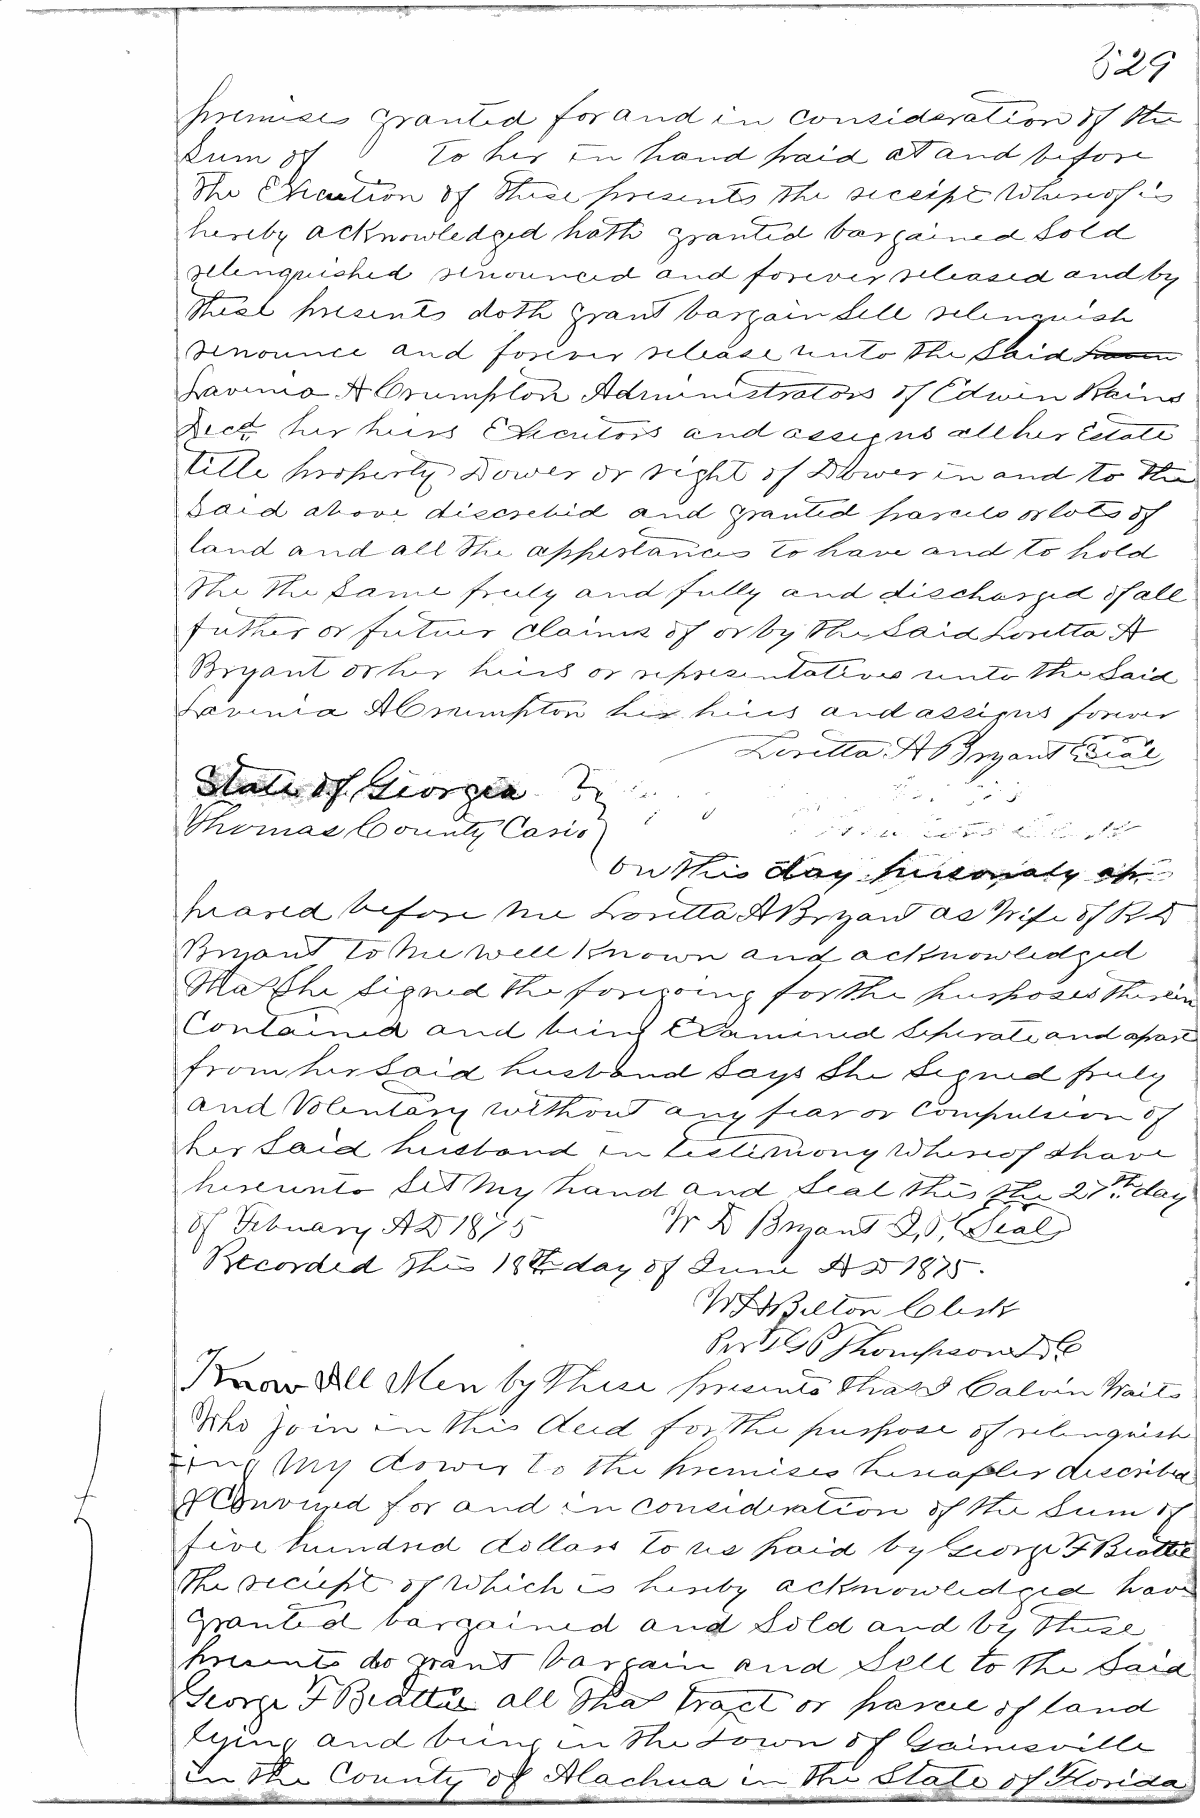 529
premises granted for and in consideration of the
Sum of to her in hand paid at and before
the Execution of these presents the receipt Whereof is
hereby acknowledged hath granted bargained Sold
relenquished renounced and forever released and by
these presents doth grant bargain Sell relenquish
renounce and forever release unto the Said
Lavinia A Crumpton Administrators of Edwin Rains
Decd. her heirs Executors and assigns all her Estate
title property Dower or right of Dower in and to the
Said above discrebid and granted parcels or lots of
land and all the appertances to have and to hold
the the Same freely and fully and discharged of all
futher or futuer claims of or by the Said Loretta A
Bryant or her heirs or representatives unto the Said
Lavenia A Crumpton her heirs and assigns forever
Loretta A Bryant Seal
State of Georgia
Thomas County
on this day personaly ap
peared before me Loretta A Bryant as Wife of R D
Bryant to me well known and acknowledged
that She Signed the foregoing for the purposes therein
Contained and being Examined Seperate and apart
from her Said husband Says She Signed freely
and Volentary without any fear or Compulsion of
her Said husband in testimony Whereof I have
hereunto Set my hand and Seal this the 27th day
of Febuary A D 1875 W D Bryant J,P, Seal
Recorded this 18th day of June A D 1875.
Belton Clerk
Per Thompson D C
Know All Men by These presents that I Calvin Waits
Who join in this deed for the purpose of relenquish
ing My dower to the premises hereafter described
& Conveyed for and in consideration of the Sum of
five hundred dollars to us paid by George F Beattie
the reciept of which is hereby acknowledged have
granted bargained and Sold and by these
presents do grant bargain and Sell to the Said
George F Beattie all that tract or parcel of land
lying and being in the town of Gainesville
in the County of Alachua in the State of Florida